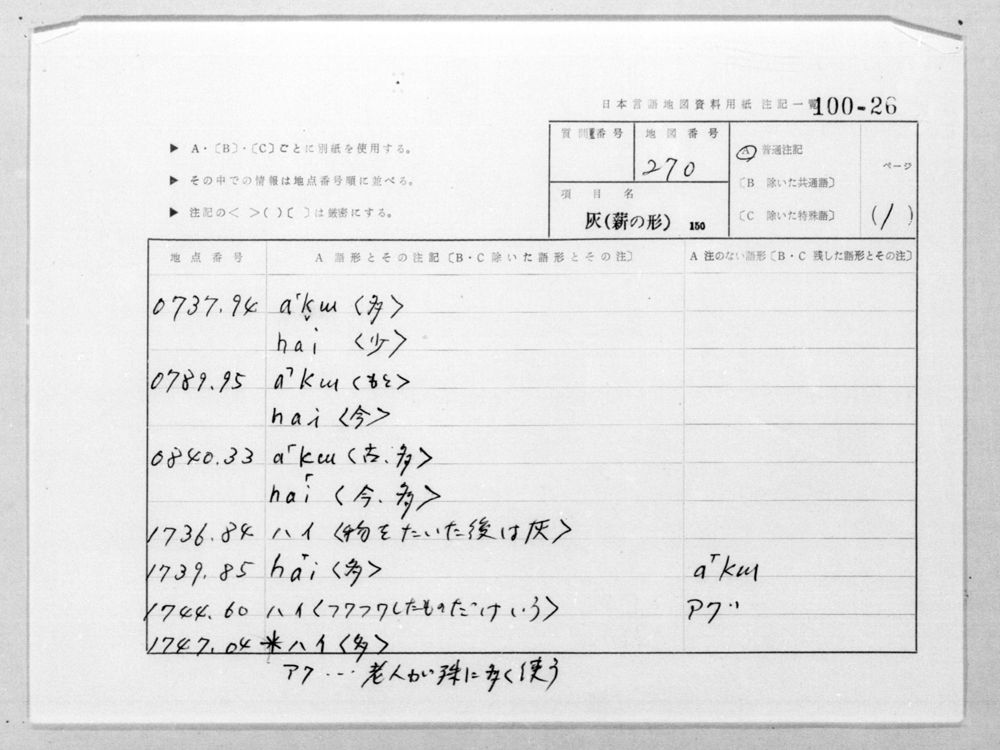 日本言語地図資料用紙 注記一覧 100-26
▶ A・〔B〕・〔C〕ごとに別紙を使用する。
▶ その中での情報は地点番号順に並べる。
▶ 注記の< >( )〔 〕は厳密にする。
質問番号
地図番号
270
項目名
灰(薪の形) 150
A 普通注記
〔B 除いた共通語〕
〔C 除いた特殊語〕
ページ
(1)
地点番号 A 語形とその注記〔B・C除いた語形とその注〕 A 注のない語形〔B・C 残した語形とその注〕
0737.94 a⌈k̬ɯ <多>
hai <少>
0789.95 a⌉kɯ <もと>
hai <今>
0840.33 a⌈kɯ <古、多>
ha⌈i <今、多>
1736.84 ハイ <物をたいた後は灰>
1739.85 ha⌈i <多> a⌈kɯ
1744.60 ハイ <フワフワしたものだけいう> アグ
1747.04 *ハイ <多>
アク… 老人が殊に多く使う